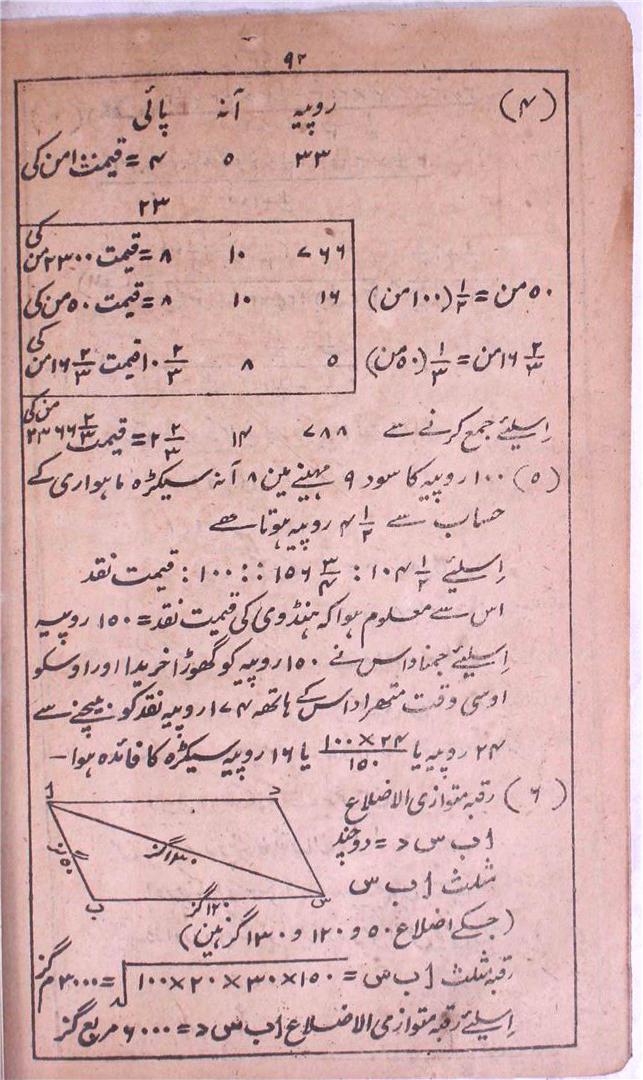 ۹۲
(۴) روپیہ آنہ پائی
۳۳ ۵ ۴ = قیمت ۱۰۰ من کی
۲۳
۷۶۶ ۱۰ ۸ = قیمت ۲۳۰۰ من کی
۵۰ من = ۱/۲ (۱۰۰ من) ۱۶ ۱۰ ۸ = قیمت ۵۰ من کی
۱۶ ۲/۳ من = ۱/۳ (۵۰ من) ۵ ۸ ۱۰ ۲/۳ قیمت ۱۶ ۲/۳ من کی
اِسلیئے جمع کرنے سے ۷۸۸ ۱۴ ۲ ۲/۳ = قیمت ۲۳۶۶ ۲/۳ من کی
(۵) ۱۰۰ روپیہ کا سود ۹ مہینے مین ۸ آنہ سیکڑہ ماہواری کے
حساب سے ۴ ۱/۲ روپیہ ہوتا ھے
اِسلیئے ۱۰۴ ۱/۲ : ۱۵۶ ۳/۴ :: ۱۰۰ : قیمت نقد
اس سے معلوم ہوا کہ ہنڈوی کی قیمت نقد = ۱۵۰ روپیہ
اِسلیئے جمناداس نے ۱۵۰ روپیہ کو گھوڑا خریدا اور اوسکو
اوسی وقت متھراداس کے ہاتھہ ۱۷۴ روپیہ نقد کو بیچنے سے
۲۴ روپیہ یا ۱۰۰×۲۴/۱۵۰ یا ۱۶ روپیہ سیکڑہ کا فائدہ ہوا—
(۶) رقبہ متوازی الاضلاع
ا ب س د = دوچند
مثلث ا ب س
ا
د
۵۰ گز
۱۳۰ گز
ب
۱۲۰ گز
س
(جسکے اضلاع ۵۰ و ۱۲۰ و ۱۳۰ گز ہین)
رقبہ مثلث ا ب س = √۱۵۰×۳۰×۲۰×۱۰۰ = ۳۰۰۰ م گز
اِسلیئے رقبہ متوازی الاضلاع ا ب س د = ۶۰۰۰ مربع گز